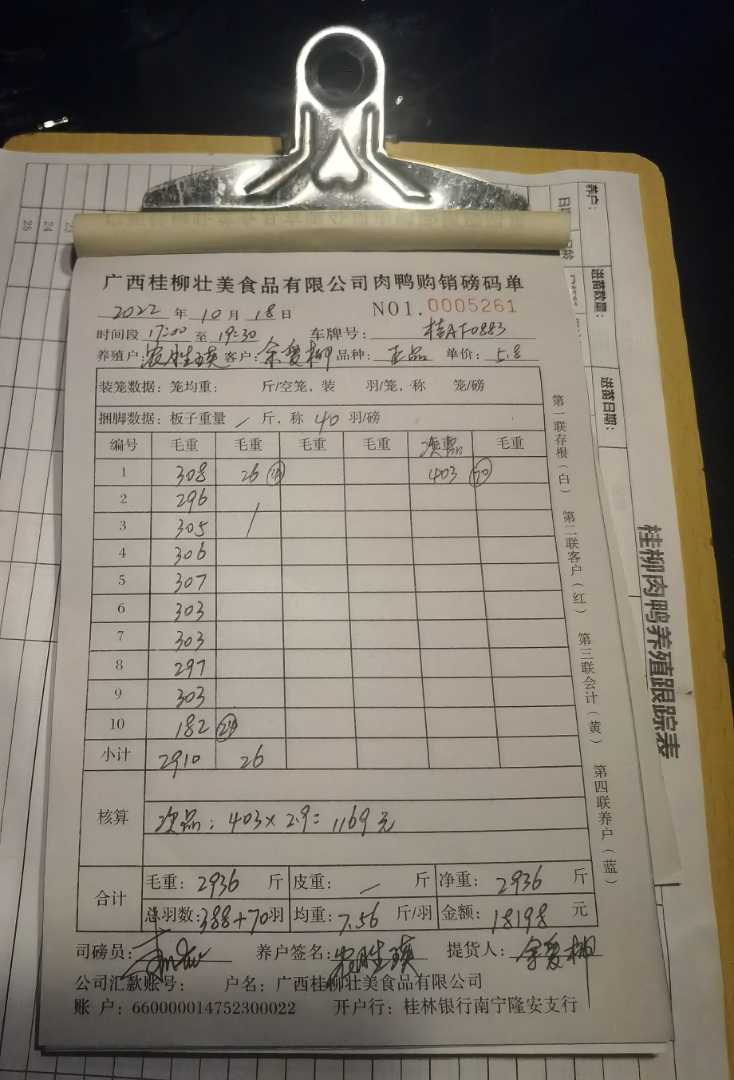 广西桂柳壮美食品有限公司肉鸭购销磅码单
2022 年 10 月 18 日 NO1.0005261
时间段 17:00 至 19:30 车牌号: 桂AF0883
养殖户: 农胜瑛 客户: 余爱柳 品种: 正品 单价: 5.8
装笼数据: 笼均重: 斤/空笼, 装 羽/笼, 称 笼/磅
捆脚数据: 板子重量 / 斤, 称 40 羽/磅
编号 毛重 毛重 毛重 毛重 次品 毛重
1 308 26 403 70
2 296
3 305 /
4 306
5 307
6 303
7 303
8 297
9 303
10 182 24
小计 2910 26
核算 次品: 403×2.9=1169元
合计 毛重: 2936 斤 皮重: / 斤 净重: 2936 斤
总羽数: 388+70羽 均重: 7.56 斤/羽 金额: 18198 元
司磅员: 养户签名: 农胜瑛 提货人: 余爱柳
公司汇款账号: 户名: 广西桂柳壮美食品有限公司
账 户: 660000014752300022 开户行: 桂林银行南宁隆安支行
第一联存根(白) 第二联客户(红) 第三联会计(黄) 第四联养户(蓝)
桂柳肉鸭养殖跟踪表
养户:
送苗数量:
送苗日期:
26 24